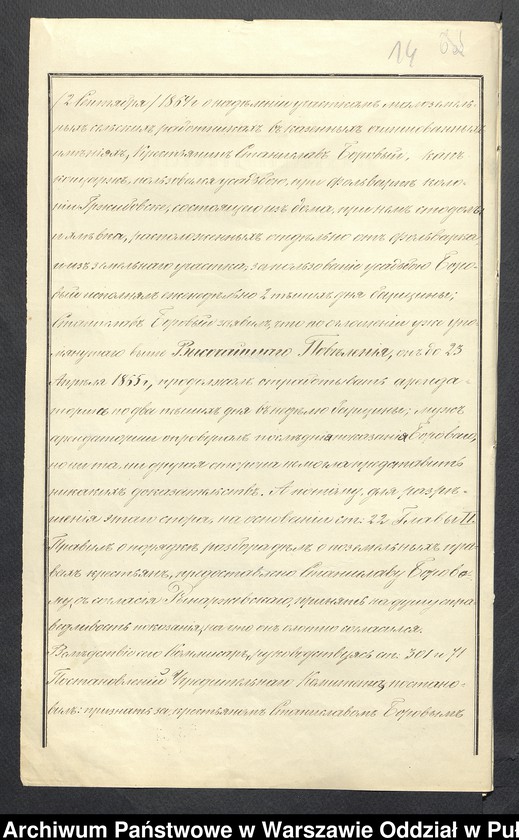 14
/2 Сентября/ 1864 г. о наделении участками малоземель-
ныхъ сельскихъ работникахъ въ казенныхъ
имѣніяхъ, Крестьянинъ Станиславъ Боровый, какъ
пользовался усадьбою, при фольваркѣ коло-
ніи состоящею изъ дома, при немъ стодолы
и расположенныхъ отдѣльно отъ фольварка,
и изъ земельнаго участка; за пользованіе усадьбою Боро-
вый исполнялъ еженедѣльно 2 пѣшихъ дня барщины;
Станиславъ Боровый заявилъ, что по состоянии уже упо-
мянутаго выше Высочайшаго Повелѣнія, онъ до 23
Апрѣля 1855 г., продолжалъ отработывать аренда-
тору по два пѣшихъ дня въ недѣлю барщины; мужъ
арендаторши опровергалъ послѣднія показанія Борового,
но ни та ни другая сторона не могла представить
никакихъ доказательствъ. А потому, для разрѣ-
шенія этого спора, на основаніи ст. 22 Главы II
Правилъ о порядкѣ разбора дѣлъ о поземельныхъ пра-
вахъ крестьянъ, предоставлено Станиславу Борово-
му, съ согласія принять на душу спра-
ведливость показанія, на что онъ охотно согласился.
Вслѣдствіе сего Коммисаръ, руководствуясь ст. 301 и 71
Постановленій Учредительнаго Комитета, постано-
вилъ: признать за крестьяниномъ Станиславомъ Боровымъ
Archiwum Państwowe w Warszawie Oddział w Puł